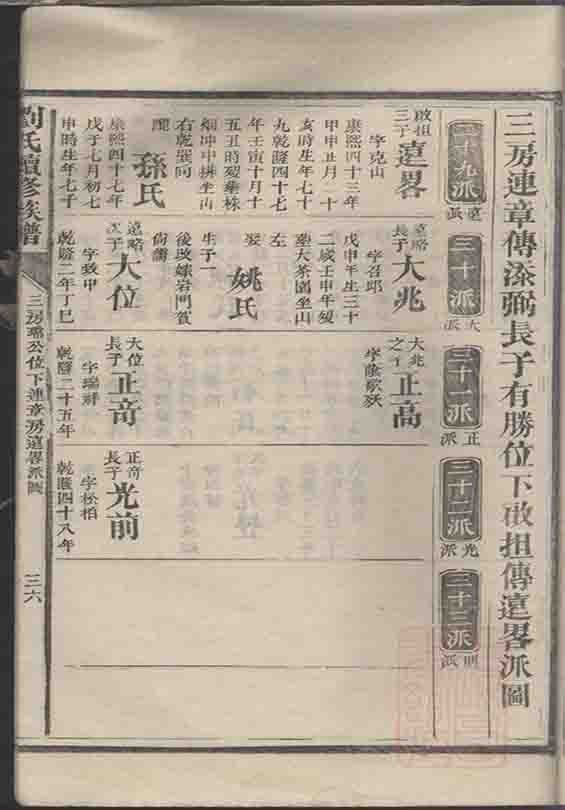 三房連章傳添弼長子有勝位下啟担傳遠畧派圖
二十九派
遠派
三十派
大派
三十一派
正派
三十二派
光派
三十三派
明派
啟担三子遠畧
字克山
康熙四十三年
甲申正月二十
亥時生年七十
九乾隆四十七
年壬寅十月十
五丑時歿葬株
烟冲中排坐山
右乾巽向
配
孫氏
康熙四十七年
戊子七月初七
申時生年七十
遠略長子大兆
字召邱
戊申年生三十
二歲壬申年歿
葬大茶園坐山
左
娶
姚氏
生子一
後改嫁岩門賀
尚瀟
遠略次子大位
字致中
乾隆二年丁巳
大兆之子正高
字蔭歌
大位長子正奇
字瑞祥
乾隆二十五年
正奇長子光前
字松柏
乾隆四十八年
劉氏續修族譜
三房瑞公位下連章房遠畧派圖
三六